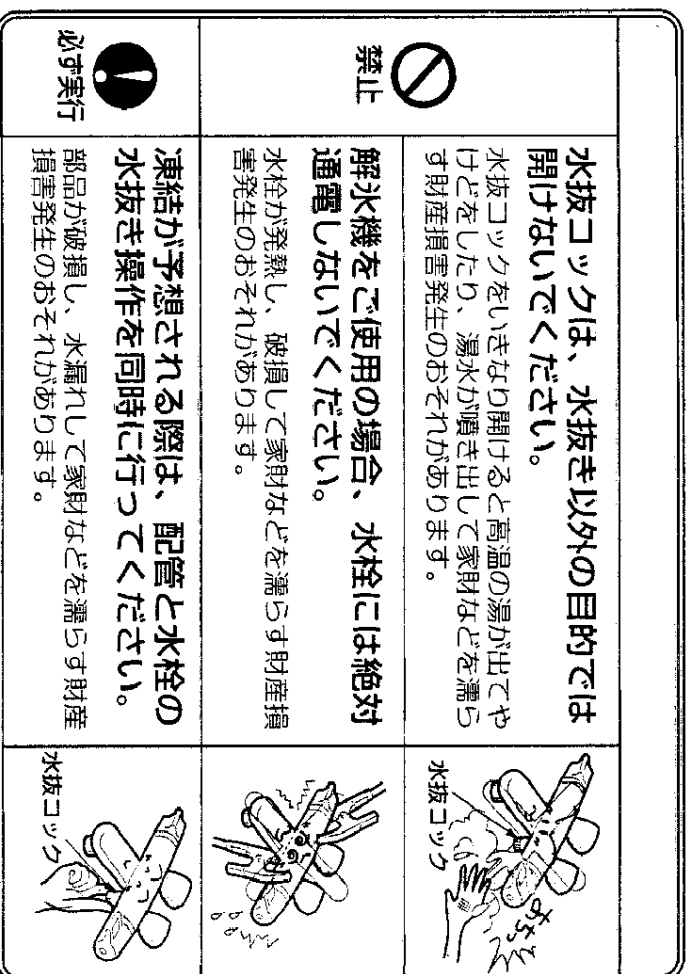 禁止
水抜コックは、水抜き以外の目的では
開けないでください。
水抜コックをいきなり開けると高温の湯が出てや
けどをしたり、湯水が噴き出して家財などを濡ら
す財産損害発生のおそれがあります。
あちっ
水抜コック
解氷機をご使用の場合、水栓には絶対
通電しないでください。
水栓が発熱し、破損して家財などを濡らす財産損
害発生のおそれがあります。
必ず実行
凍結が予想される際は、配管と水栓の
水抜き操作を同時に行ってください。
部品が破損し、水漏れして家財などを濡らす財産
損害発生のおそれがあります。
水抜コック